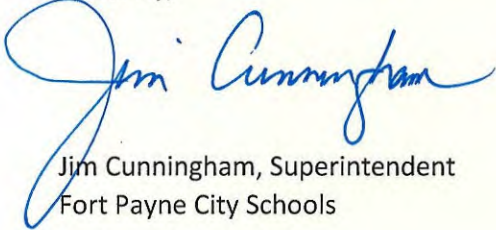 Jim Cunningham
Jim Cunningham, Superintendent
Fort Payne City Schools